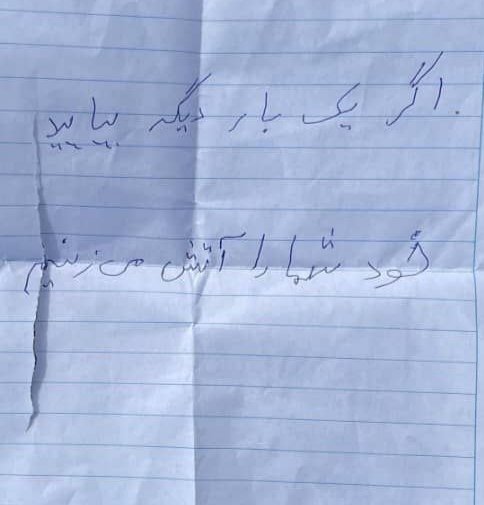 اگر یک بار دیگر بیایید
خود شما را آتش می‌زنیم